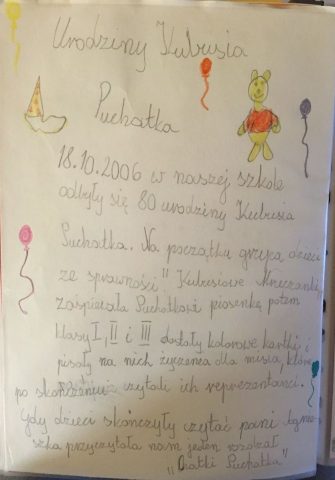 Urodziny Kubusia
Puchatka
18.10.2006 w naszej szkole
odbyły się 80 urodziny Kubusia
Puchatka. Na początku grupa dzieci
ze sprawności "Kubusiowe Mruczanki"
zaśpiewała Puchatkowi piosenkę potem
klasy I, II i III dostały kolorowe kartki i
pisały na nich życzenia dla misia, które
po skończeniu czytali ich reprezentanci.
Gdy dzieci skończyły czytać pani Agnie-
szka przyczytała nam jeden rozdział
"Chatki Puchatka"